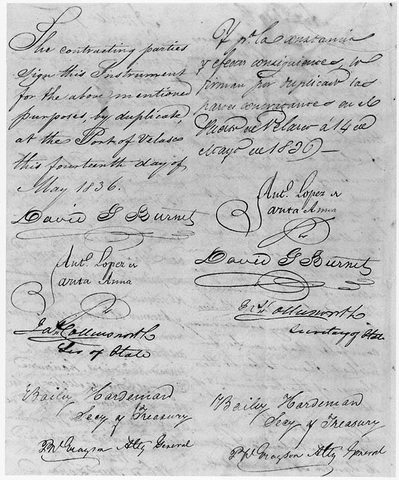 The contracting parties
sign this Instrument
for the above mentione
purposes, by duplicate,
at the Port of Velasco
this fourteenth day of
May 1836.
David G Burnet
Anto. Lopez de
Santa Anna
Jas Collinsworth
Sec of State
Baily Hardeman
Secy of Treasury
P. W. Grayson Atty General
Y pa. la constancia
y efectos consiguientes, lo
firman por duplicado las
partes contratantes en el
Puerto de Velasco á 14 de
Mayo de 1836
Anto. Lopez de
Santa Anna
David G Burnet
Jas Collinsworth
Secretary of State
Baily Hardeman
Secy of Treasury
P. W. Grayson Atty General